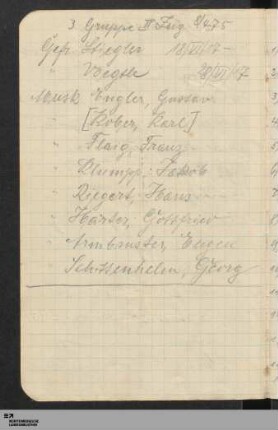 3. Gruppe III Zug 8/475
Gefr. Stiegler 18/VII/17 -
" Voegtle 20/VI/17
Musk Engler, Gustav
" [Kober, Karl]
" Flaig, Franz
" Klumpp, Jakob
" Riegert, Hans
" Harter, Gottfried
" Armbruster, Eugen
Schittenhelm, Georg
WÜRTTEMBERGISCHE
LANDESBIBLIOTHEK